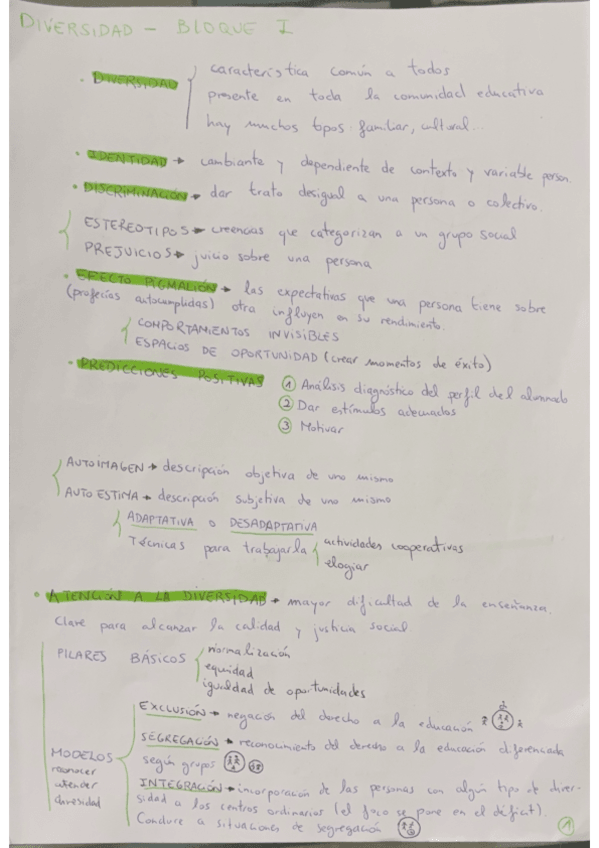 DIVERSIDAD - BLOQUE I
· DIVERSIDAD
característica común a todos
presente en toda la comunidad educativa
hay muchos tipos: familiar, cultural...
· IDENTIDAD → cambiante y dependiente de contexto y variable person.
· DISCRIMINACIÓN → dar trato desigual a una persona o colectivo.
ESTEREOTIPOS → creencias que categorizan a un grupo social
PREJUICIOS → juicio sobre una persona
· EFECTO PIGMALIÓN → las expectativas que una persona tiene sobre
(profecías autocumplidas) otra influyen en su rendimiento.
COMPORTAMIENTOS INVISIBLES
ESPACIOS DE OPORTUNIDAD (crear momentos de éxito)
· PREDICCIONES POSITIVAS
1 Análisis diagnóstico del perfil del alumnado
2 Dar estímulos adecuados
3 Motivar
AUTOIMAGEN → descripción objetiva de uno mismo
AUTOESTIMA → descripción subjetiva de uno mismo
ADAPTATIVA o DESADAPTATIVA
Técnicas para trabajarla
actividades cooperativas
elogiar
· ATENCIÓN A LA DIVERSIDAD → mayor dificultad de la enseñanza.
Clave para alcanzar la calidad y justicia social
PILARES BÁSICOS
normalización
equidad
igualdad de oportunidades
MODELOS
reconocer
atender
diversidad
EXCLUSIÓN → negación del derecho a la educación
SEGREGACIÓN → reconocimiento del derecho a la educación diferenciada
según grupos
INTEGRACIÓN → incorporación de las personas con algún tipo de diver-
sidad a los centros ordinarios (el foco se pone en el déficit).
Conduce a situaciones de segregación
1